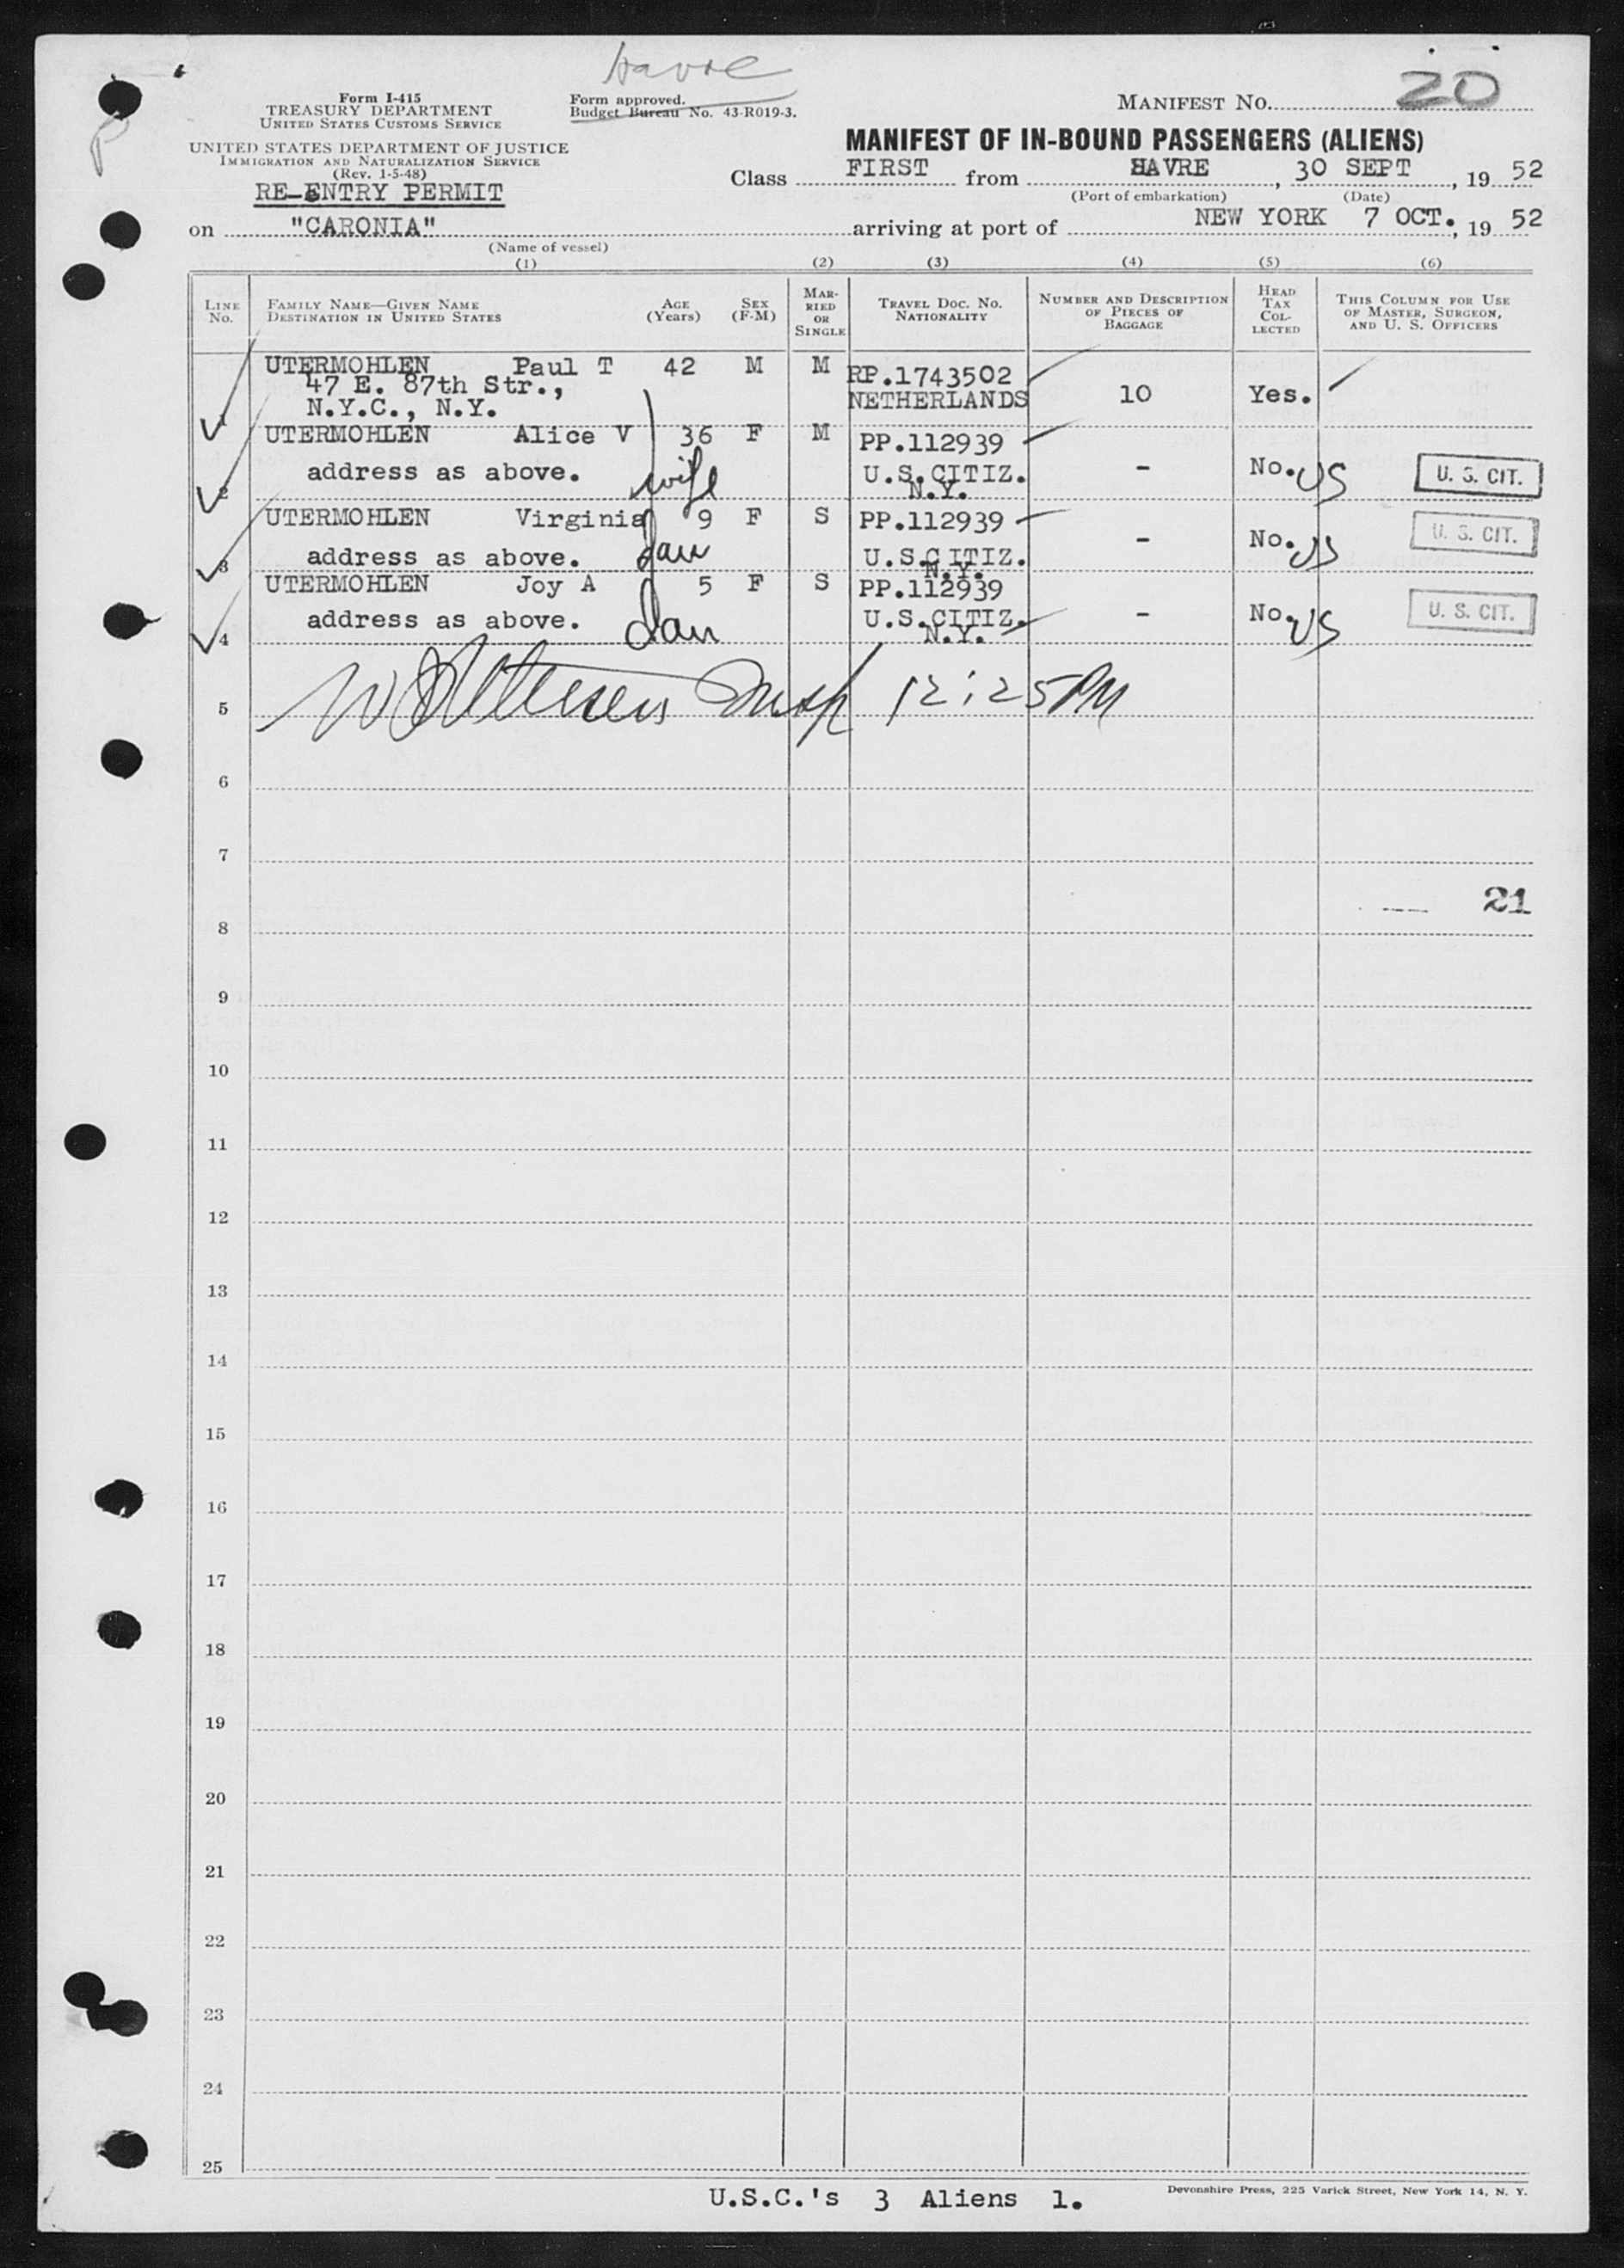 Havre
Form I-415
TREASURY DEPARTMENT
UNITED STATES CUSTOMS SERVICE
UNITED STATES DEPARTMENT OF JUSTICE
IMMIGRATION AND NATURALIZATION SERVICE
(Rev. 1-5-48)
RE-ENTRY PERMIT
Form approved.
Budget Bureau No. 43-R019-3.
MANIFEST NO. 20
MANIFEST OF IN-BOUND PASSENGERS (ALIENS)
Class FIRST from HAVRE, 30 SEPT, 19 52
(Port of embarkation) (Date)
on "CARONIA" arriving at port of NEW YORK 7 OCT., 19 52
(Name of vessel)
(1) (2) (3) (4) (5) (6)
LINE NO.
FAMILY NAME—GIVEN NAME
DESTINATION IN UNITED STATES
AGE (Years)
SEX (F-M)
MARRIED OR SINGLE
TRAVEL DOC. NO. NATIONALITY
NUMBER AND DESCRIPTION OF PIECES OF BAGGAGE
HEAD TAX COLLECTED
THIS COLUMN FOR USE OF MASTER, SURGEON, AND U. S. OFFICERS
UTERMOHLEN Paul T 42 M M RP.1743502
47 E. 87th Str.,
N.Y.C., N.Y. NETHERLANDS 10 Yes.
1
UTERMOHLEN Alice V 36 F M PP.112939
address as above. wife U.S.CITIZ. - No. US U. S. CIT.
2 N.Y.
UTERMOHLEN Virginia 9 F S PP.112939
address as above. dau U.S.CITIZ. - No. US U. S. CIT.
3 N.Y.
UTERMOHLEN Joy A 5 F S PP.112939
address as above. dau U.S.CITIZ. - No. US U. S. CIT.
4 N.Y.
5 12:25 PM
6
7
21
8
9
10
11
12
13
14
15
16
17
18
19
20
21
22
23
24
25
U.S.C.'s 3 Aliens 1.
Devonshire Press, 225 Varick Street, New York 14, N. Y.